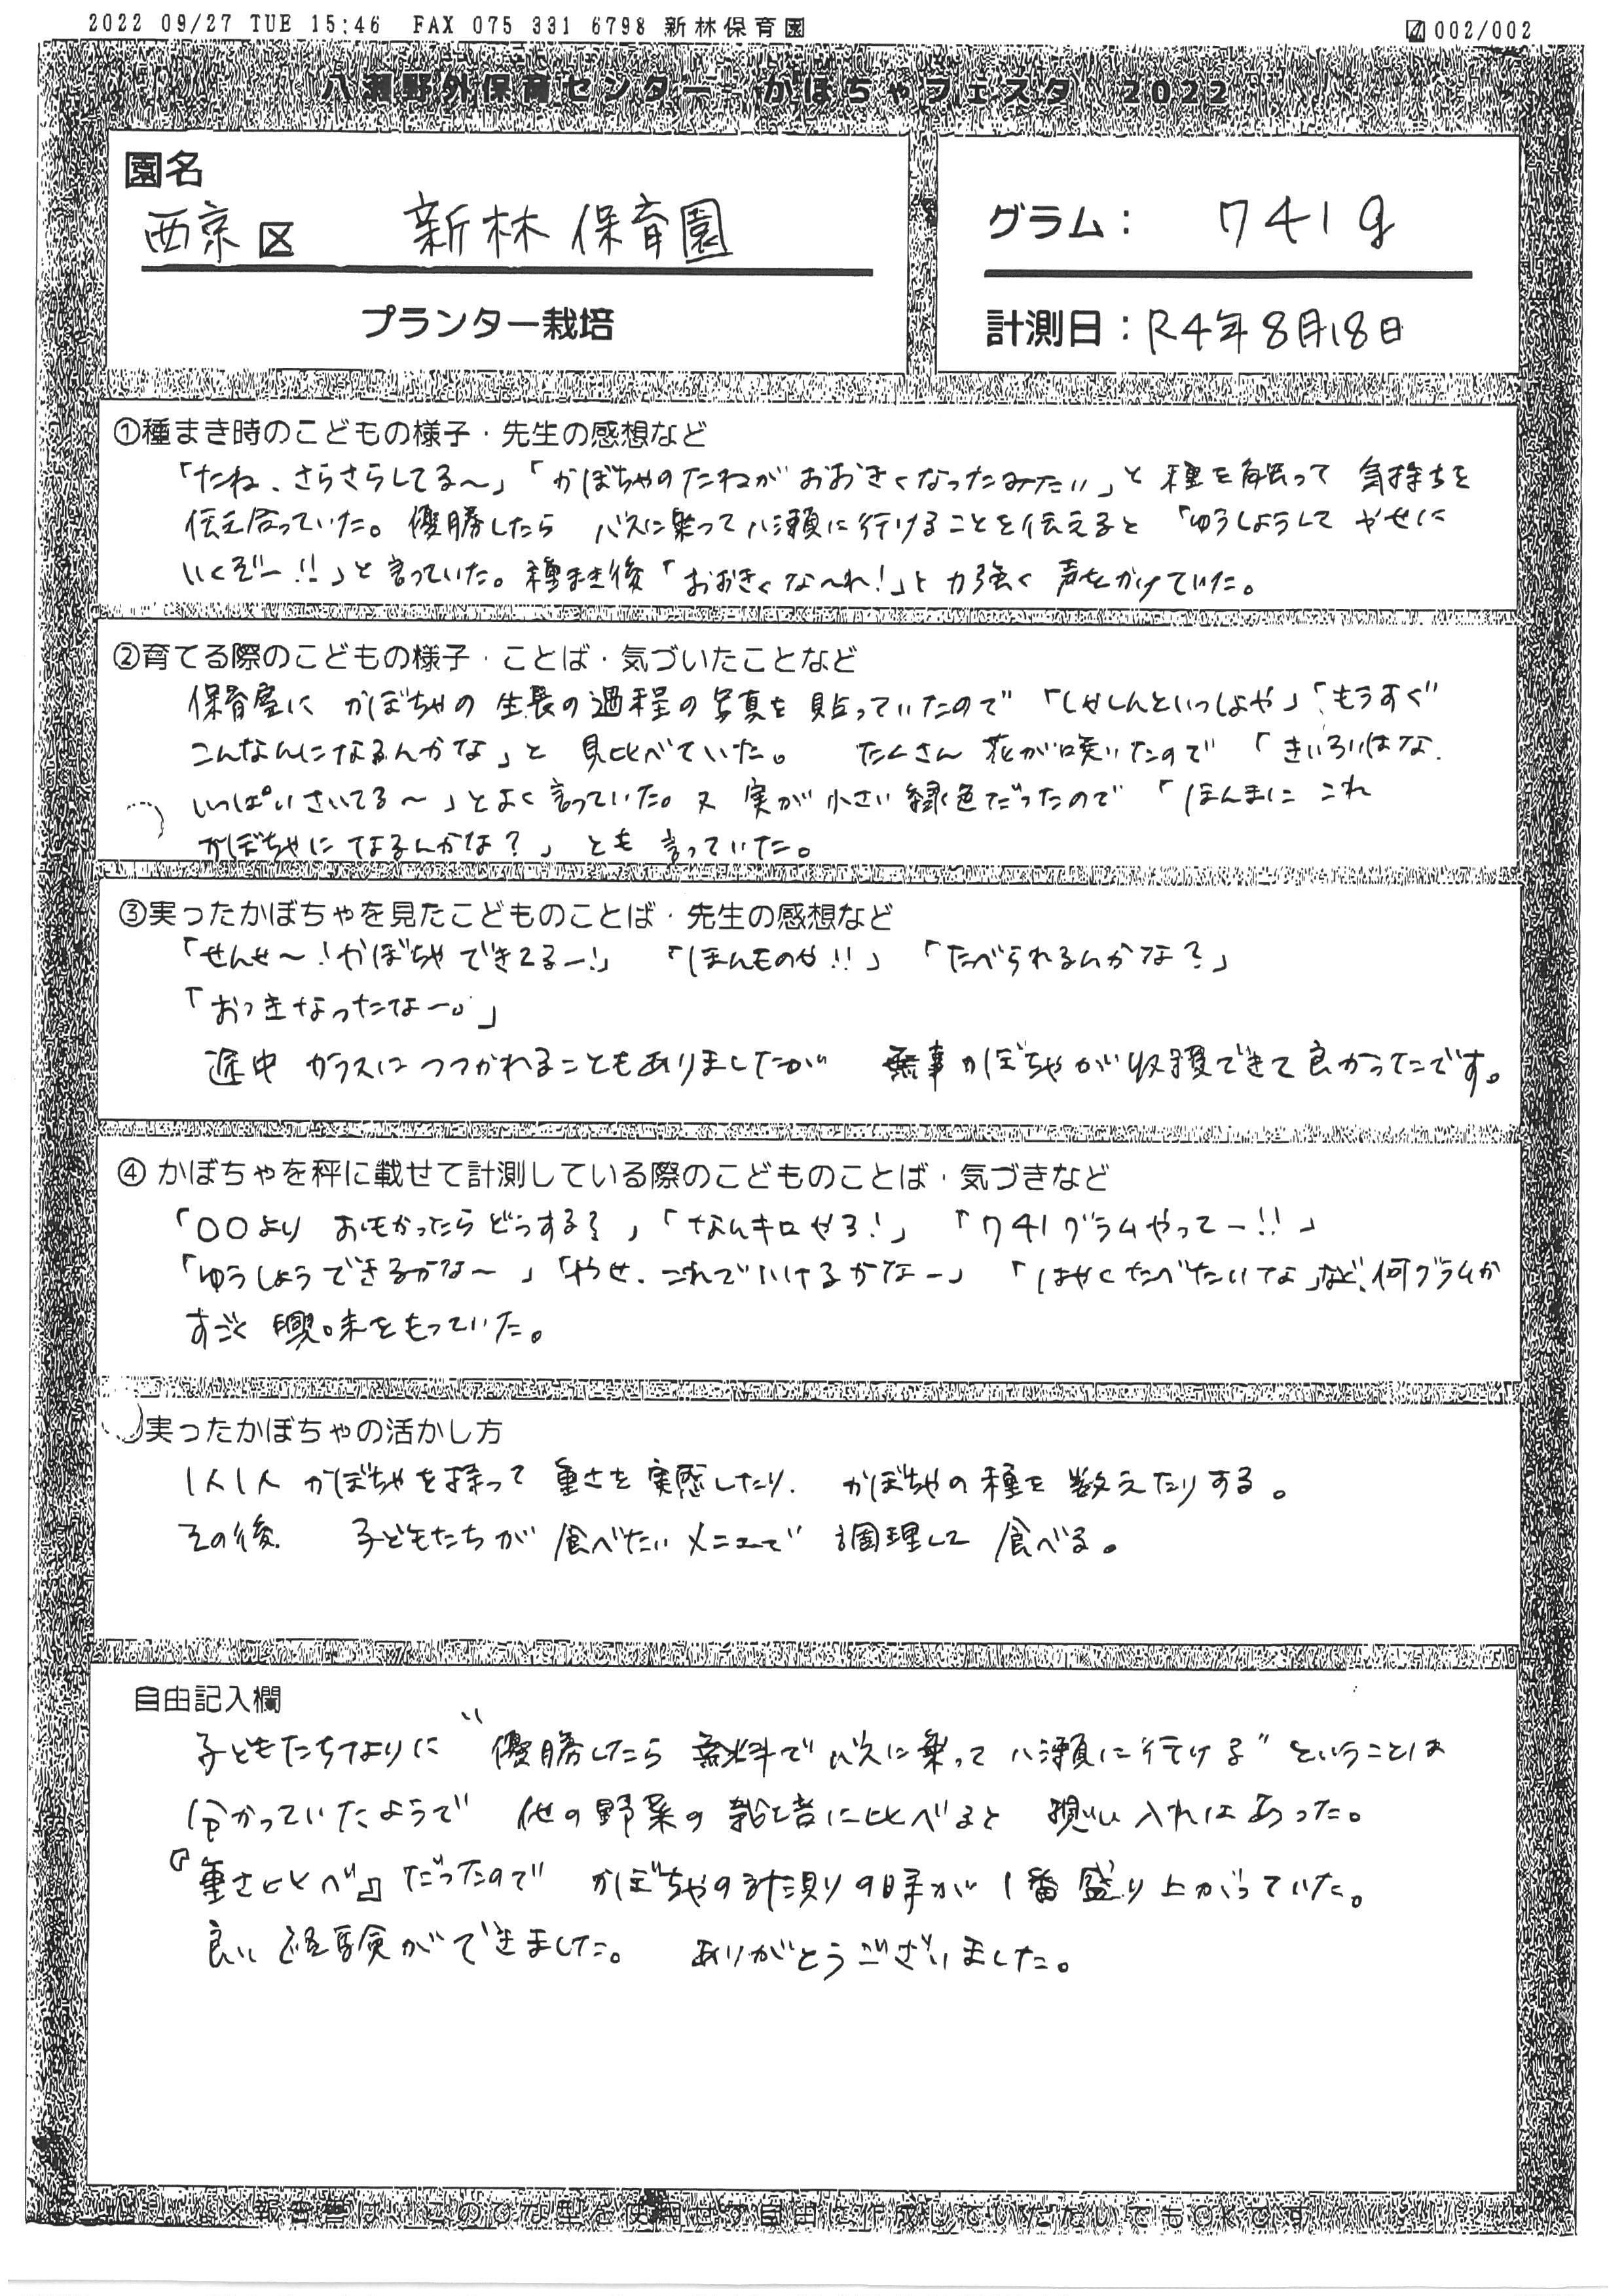 2022 09/27 TUE 15:46 FAX 075 331 6798 新林保育園 002/002
八瀬野外保育センター かぼちゃフェスタ 2022
園名
西京区 新林保育園
プランター栽培
グラム： 741g
計測日：R4年8月18日
①種まき時のこどもの様子・先生の感想など
「たね、さらさらしてる〜」「かぼちゃのたねが おおきくなったみたい」と 種を触って 気持ちを
伝え合っていた。優勝したら バスに乗って八瀬に行けることを伝えると 「ゆうしょうして やせに
いくぞー!!」と言っていた。種まき後「おおきくな〜れ！」と力強く 声をかけていた。
②育てる際のこどもの様子・ことば・気づいたことなど
保育室に かぼちゃの 生長の過程の写真を 貼っていたので 「しゃしんといっしょや」「もうすぐ
こんなんになるんかな」と 見比べていた。 たくさん 花が咲いたので 「きいろいはな、
いっぱいさいてる〜」とよく言っていた。又 実が小さい緑色だったので 「ほんまに これ
かぼちゃに なるんかな？」 とも 言っていた。
③実ったかぼちゃを見たこどものことば・先生の感想など
「せんせ〜！かぼちゃ できてるー！」 「ほんものや!!」 「たべられるんかな？」
「おっきなったなー。」
途中 カラスに つつかれることもありましたが 無事かぼちゃが収穫できて良かったです。
④ かぼちゃを秤に載せて計測している際のこどものことば・気づきなど
「○○より おもかったらどうする？」「なんキロやろ！」 「741グラムやってー!!」
「ゆうしょうできるかな〜」「やせ、これでいけるかなー」 「はやくたべたいな」など、何グラムか
すごく 興味をもっていた。
実ったかぼちゃの活かし方
1人1人 かぼちゃを持って 重さを 実感したり、 かぼちゃの種を 数えたりする。
その後、 子どもたちが 食べたいメニューで 調理して 食べる。
自由記入欄
子どもたちなりに “優勝したら 無料でバスに乗って 八瀬に行ける” ということは
分かっていたようで 他の野菜の栽培に比べると 思い入れはあった。
『重さ比べ』だったので かぼちゃの計測の時が 1番盛り上がっていた。
良い経験ができました。 ありがとうございました。
※報告書は、このひな型を使用せず自由に作成していただいてもOKです